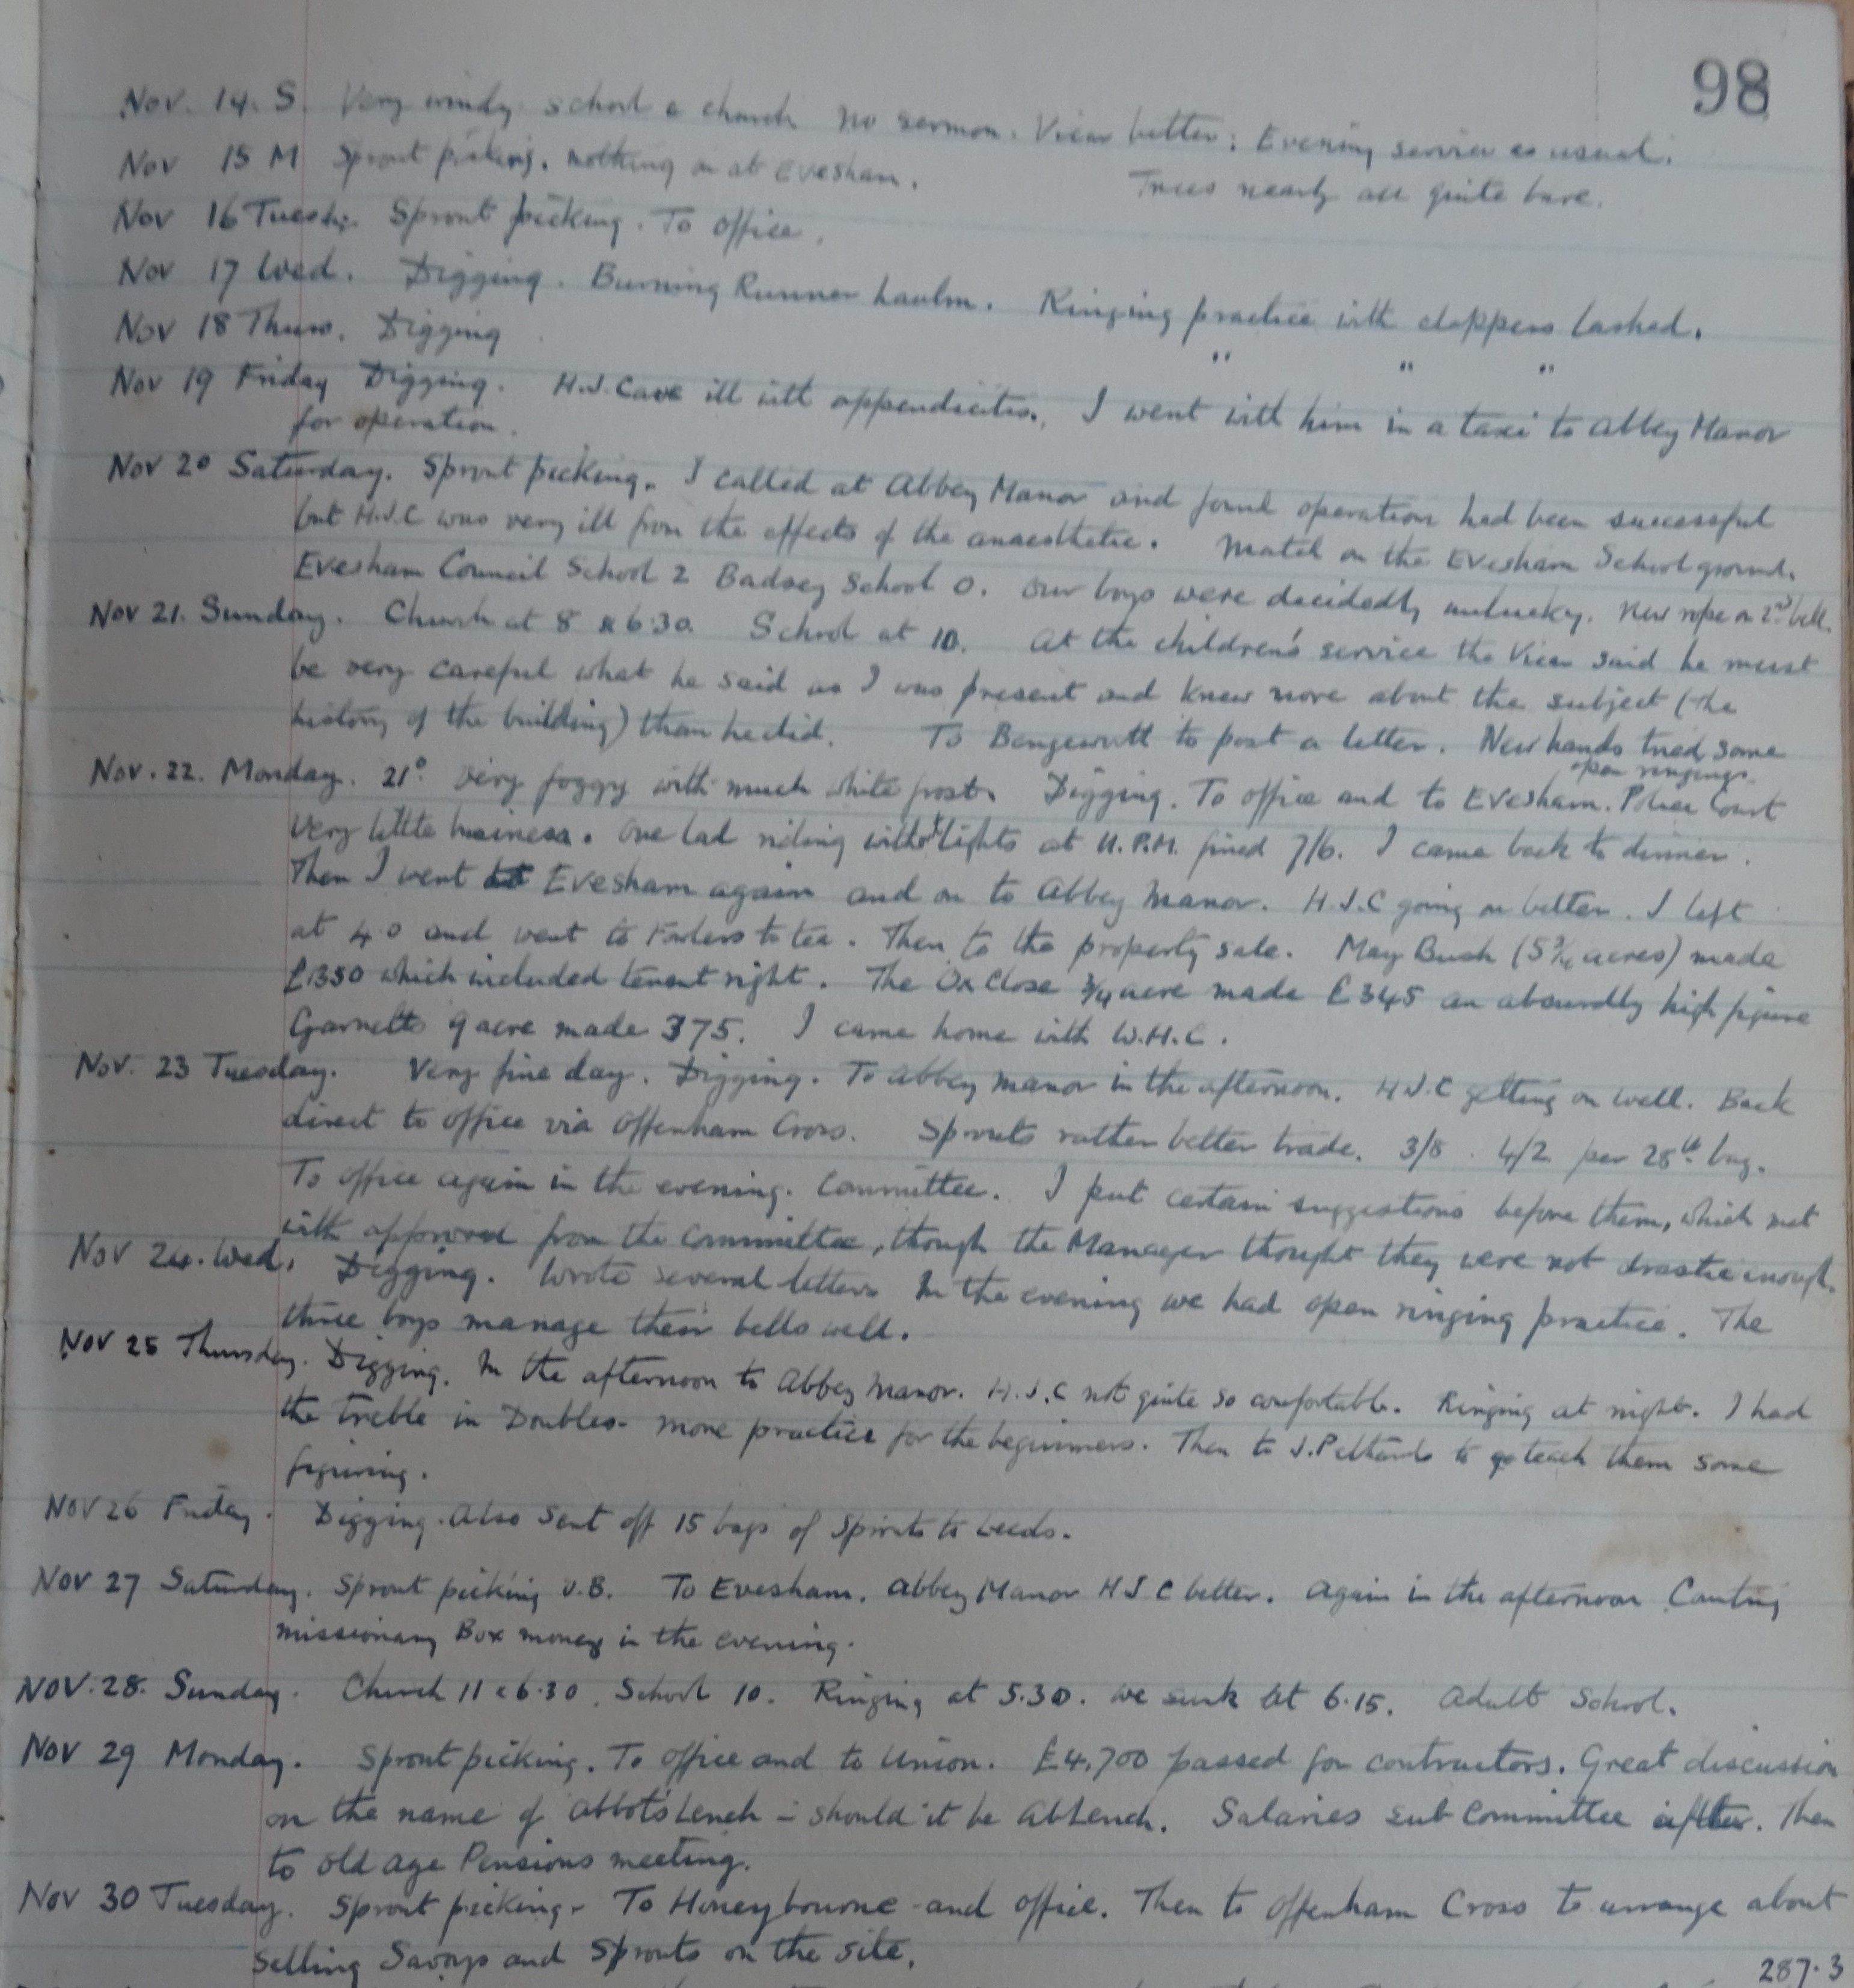 98
Nov. 14. S. Very windy. School & church no sermon. Vicar better: Evening service as usual.
Nov 15 M Sprout picking. nothing on at Evesham. Trees nearly all quite bare.
Nov 16 Tuesday. Sprout picking. To office.
Nov 17 Wed. Digging. Burning Runner haulm. Ringing practice with clappers lashed.
Nov 18 Thurs. Digging " " "
Nov 19 Friday Digging. H.J. Cave ill with appendicitis. I went with him in a taxi to Abbey Manor
for operation.
Nov 20 Saturday. Sprout picking. I called at Abbey Manor and found operation had been successful
but H.J.C was very ill from the effects of the anaesthetic. Match on the Evesham School ground.
Evesham Council School 2 Badsey School 0. Our boys were decidedly unlucky. New rope on 2nd bell.
Nov 21. Sunday. Church at 8 & 6.30. School at 10. At the children's service the Vicar said he must
be very careful what he said as I was present and knew more about the subject (the
history of the building) than he did. To Bengeworth to post a letter. New hands tried some
open ringings.
Nov. 22. Monday. 21° Very foggy with much white frost. Digging. To office and to Evesham. Police Court
very little business. One lad riding witht lights at 11. P.M. fined 7/6. I came back to dinner.
Then I went to Evesham again and on to Abbey Manor. H J.C going on better. I left
at 4.0 and went to to tea. Then to the property sale. May Bush (5 3/4 acres) made
£1350 which included tenant right. The Ox Close 3/4 acre made £345 an absurdly high figure
Garnetts 9 acre made 375. I came home with W.H.C.
Nov. 23 Tuesday. Very fine day. Digging. To Abbey Manor in the afternoon. H J.C getting on well. Back
direct to office via Offenham Cross. Sprouts rather better trade. 3/8. 4/2 per 28lb. bag.
To office again in the evening. Committee. I put certain suggestions before them, which met
with approval from the Committee, though the Manager thought they were not drastic enough.
Nov 24. Wed. Digging. Wrote several letters. In the evening we had open ringing practice. The
three boys manage their bells well.
Nov 25 Thursday. Digging. In the afternoon to Abbey Manor. H.J.C not quite so comfortable. Ringing at night. I had
the treble in Doubles. more practice for the beginners. Then to J. to teach them some
figuring.
Nov 26 Friday. Digging. Also sent off 15 bags of Sprouts to Leeds.
Nov 27 Saturday. Sprout picking U.B. To Evesham. Abbey Manor H J C better. Again in the afternoon Counting
missionary Box money in the evening.
Nov. 28. Sunday. Church 11 & 6.30. School 10. Ringing at 5.30. we sunk at 6.15. Adult School.
Nov 29 Monday. Sprout picking. To office and to Union. £4,700 passed for contractors. Great discussion
on the name of Abbot's Lench – should it be AbLench. Salaries sub Committee after. Then
to old age Pensions meeting.
Nov 30 Tuesday. Sprout picking. To Honeybourne and office. Then to Offenham Cross to arrange about
selling Savoys and Sprouts on the site.
287.3